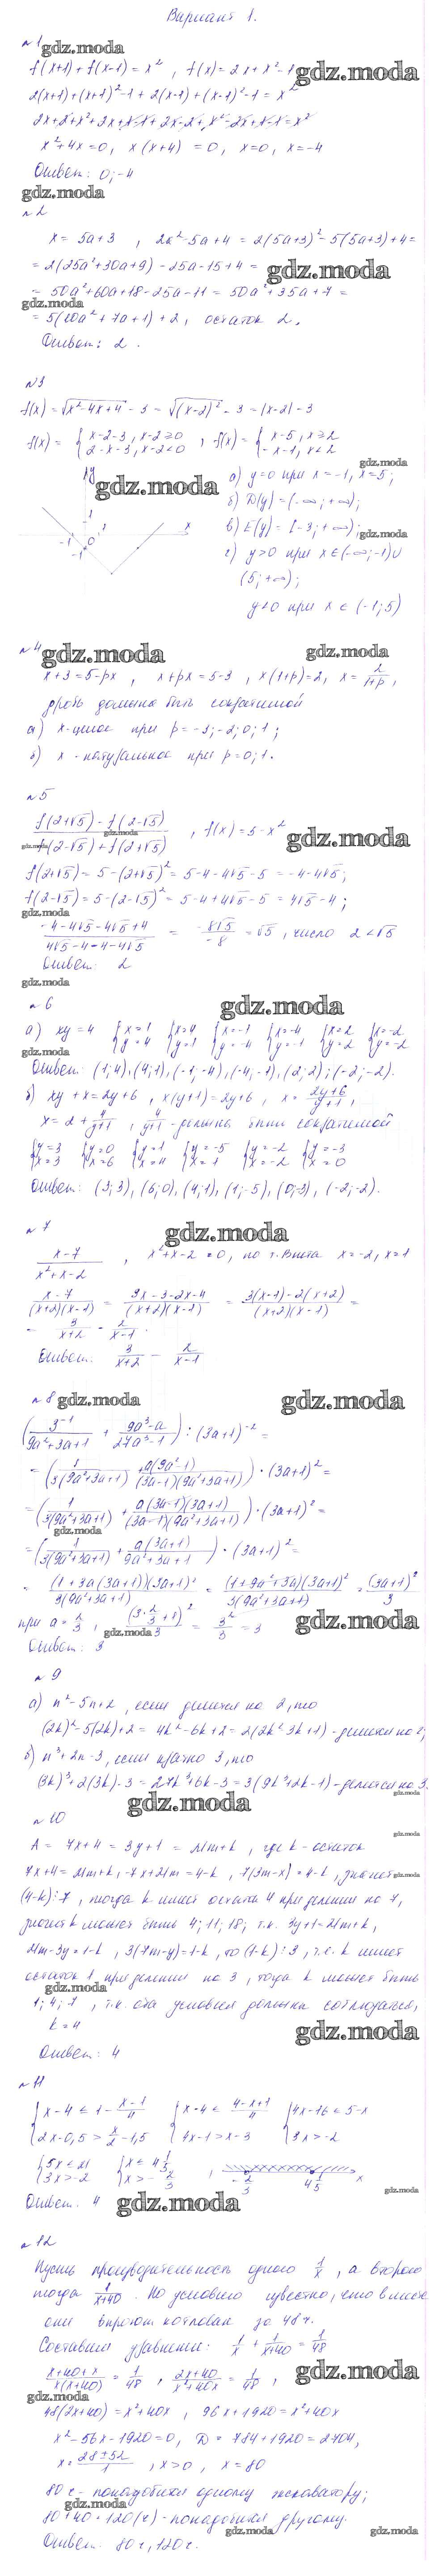 Вариант 1.
№1
gdz.moda
f(x+1)+f(x-1)=x², f(x)=2x+x²-1
gdz.moda
2(x+1)+(x+1)²-1+2(x-1)+(x-1)²-1=x²
2x+2+x²+2x+1-1+2x-2+x²-2x+1-1=x²
x²+4x=0, x(x+4)=0, x=0, x=-4
Ответ: 0; -4
gdz.moda
№2
x=5a+3, 2x²-5a+4=2(5a+3)²-5(5a+3)+4=
=2(25a²+30a+9)-25a-15+4=
gdz.moda
=50a²+60a+18-25a-11=50a²+35a+7=
gdz.moda
=5(10a²+7a+1)+2, остаток 2.
Ответ: 2.
№3
f(x)=√x²-4x+4-3=√(x-2)²-3=|x-2|-3
f(x)={x-2-3, x-2≥0 2-x-3, x-2<0, f(x)={x-5, x≥2 -x-1, x<2
gdz.moda
gdz.moda
а) y=0 при x=-1, x=5;
б) D(y)=(-∞; +∞);
в) E(y)=[-3; +∞);
gdz.moda
г) y>0 при x∈(-∞;-1)∪
(5;+∞);
y<0 при x∈(-1;5)
№4
gdz.moda
gdz.moda
x+3=5-px, x+px=5-3, x(1+p)=2, x=2/1+p,
дробь должна быть сократимой
а) x-целое при p=-3;-2;0;1;
б) x-натуральное при p=0;1.
№5
f(2+√5)-f(2-√5) / f(2-√5)+f(2+√5), f(x)=5-x²
gdz.moda
gdz.moda
gdz.moda
f(2+√5)=5-(2+√5)²=5-4-4√5-5=-4-4√5;
f(2-√5)=5-(2-√5)²=5-4+4√5-5=4√5-4;
gdz.moda
-4-4√5-4√5+4 / 4√5-4-4-4√5 = -8√5/-8 = √5, число 2<√5
Ответ: 2
gdz.moda
№6
gdz.moda
а) xy=4 {x=1 y=4 {x=4 y=1 {x=-1 y=-4 {x=-4 y=-1 {x=2 y=2 {x=-2 y=-2
gdz.moda
Ответ: (1;4),(4;1),(-1;-4),(-4;-1),(2;2);(-2;-2).
б) xy+x=2y+6, x(y+1)=2y+6, x=2y+6/y+1,
x=2+4/y+1, 4/y+1-должна быть сократимой
{y=3 x=3 {y=0 x=6 {y=1 x=4 {y=-5 x=1 {y=-2 x=-2 {y=-3 x=0
Ответ: (3;3),(6;0),(4;1),(1;-5),(0;-3),(-2;-2).
№7
gdz.moda
x-7/x²+x-2, x²+x-2=0, по т. Виета x=-2, x=1
x-7/(x+2)(x-1) = 3x-3-2x-4/(x+2)(x-1) = 3(x-1)-2(x+2)/(x+2)(x-1) =
= 3/x+2 - 2/x-1.
Ответ: 3/x+2 - 2/x-1
№8
gdz.moda
gdz.moda
(3⁻¹/9a²+3a+1 + 9a³-a/27a³-1):(3a+1)⁻²=
=(1/3(9a²+3a+1)+a(9a²-1)/(3a-1)(9a²+3a+1))·(3a+1)²=
=(1/3(9a²+3a+1)+a(3a-1)(3a+1)/(3a-1)(9a²+3a+1))·(3a+1)²=
gdz.moda
=(1/3(9a²+3a+1)+a(3a+1)/9a²+3a+1)·(3a+1)²=
=(1+3a(3a+1))(3a+1)²/3(9a²+3a+1)=(1+9a²+3a)(3a+1)²/3(9a²+3a+1)=(3a+1)²/3
при a=2/3, (3·2/3+1)²/3=3²/3=3
gdz.moda
gdz.moda
Ответ: 3
№9
а) n²-5n+2, если делится на 2, то
(2k)²-5(2k)+2=4k²-6k+2=2(2k²-3k+1)-делится на 2;
б) n³+2n-3, если кратно 3, то
(3k)³+2(3k)-3=27k³+6k-3=3(9k³+2k-1)-делится на 3.
gdz.moda
gdz.moda
№10
gdz.moda
A=7x+4=3y+1=21m+k, где k-остаток
7x+4=21m+k, -7x+21m=4-k, 7(3m-x)=4-k, значит
gdz.moda
(4-k)⋮7, тогда k имеет остаток 4 при делении на 7,
значит k может быть 4; 11; 18; т.к. 3y+1=21m+k,
21m-3y=1-k, 3(7m-y)=1-k, то (1-k)⋮3, т.е. k имеет
остаток 1 при делении на 3, тогда k может быть
gdz.moda
1; 4; 7, т.к. оба условия должны соблюдаться,
k=4
gdz.moda
Ответ: 4
№11
{x-4≤1-x-1/4 2x-0,5>x/2-1,5 {x-4≤4-x+1/4 4x-1>x-3 {4x-16≤5-x 3x>-2
{5x≤21 3x>-2 {x≤4 1/5 x>-2/3, -2/3 4 1/5 x
gdz.moda
Ответ: 4
gdz.moda
№12
Пусть производительность одного 1/x, а второго
тогда 1/x+40. По условию известно, что вместе
они вырыют котлован за 48 ч.
Составим уравнение: 1/x+1/x+40=1/48
gdz.moda
x+40+x/x(x+40)=1/48, 2x+40/x²+40x=1/48,
gdz.moda
48(2x+40)=x²+40x, 96x+1920=x²+40x
x²-56x-1920=0, D=784+1920=2704,
x=28±52/1, x>0, x=80
80 ч - понадобится одному экскаватору;
gdz.moda
80+40=120(ч)-понадобится другому.
gdz.moda
gdz.moda
Ответ: 80 ч, 120 ч.